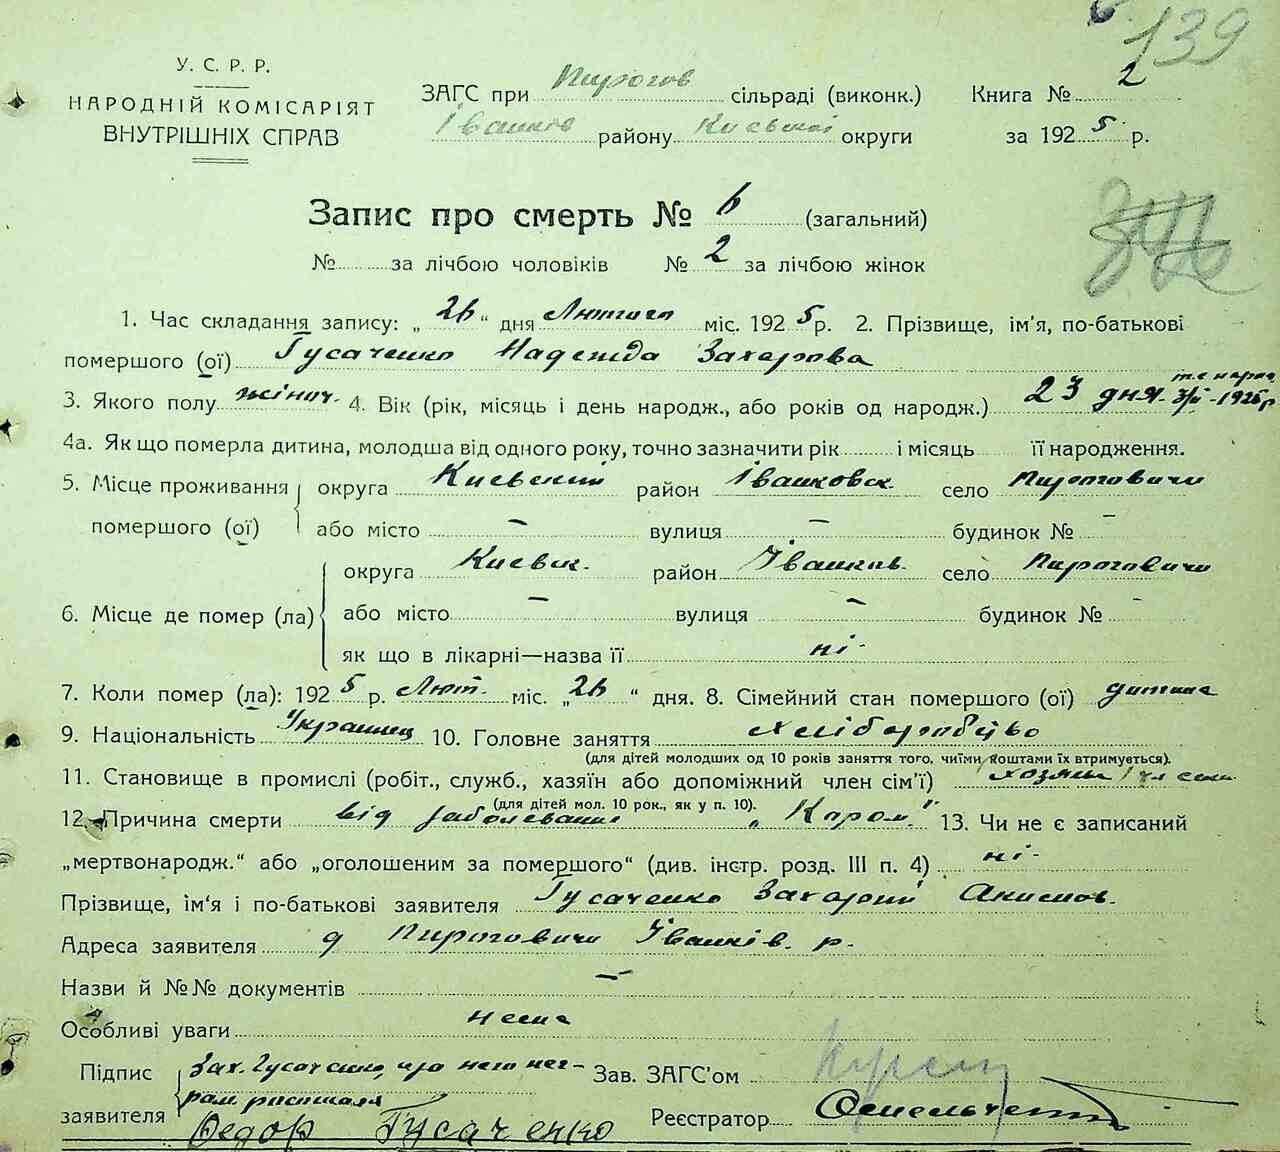 139
У. С. Р. Р.
НАРОДНІЙ КОМІСАРІЯТ
ВНУТРІШНІХ СПРАВ
ЗАГС при Пирогов сільраді (виконк.) Книга № 2
Іванків району Киевской округи за 1925 р.
Запис про смерть № 6 (загальний)
№ за лічбою чоловіків № 2 за лічбою жінок
1. Час складання запису: „26“ дня Лютого міс. 1925 р. 2. Прізвище, ім'я, по-батькові
помершого (ої) Гусаченко Надежда Захарова
3. Якого полу жіноч. 4. Вік (рік, місяць і день народж., або років од народж.) 23 дня
4а. Як що померла дитина, молодша від одного року, точно зазначити рік і місяць її народження.
5. Місце проживання округа Киевский район Іванковск. село Пироговичи
помершого (ої) або місто – вулиця – будинок № –
округа Киевск. район Іванков. село Пироговичи
6. Місце де помер (ла) або місто – вулиця – будинок № –
як що в лікарні—назва її ні
7. Коли помер (ла): 1925 р. Лют. міс. „26“ дня. 8. Сімейний стан помершого (ої) дитина
9. Національність Украинец 10. Головне заняття хліборобство
(для дітей молодших од 10 років заняття того, чиїми коштами їх втримується).
11. Становище в промислі (робіт., служб., хазяїн або допоміжний член сім'ї) хозяин
(для дітей мол. 10 рок., як у п. 10).
12. Причина смерти від заболевания 13. Чи не є записаний
„мертвонародж.“ або „оголошеним за помершого“ (див. інстр. розд. III п. 4) ні
Прізвище, ім'я і по-батькові заявителя Гусаченко Захарий Акимов.
Адреса заявителя Пироговичи Іванків. р.
Назви й №№ документів –
Особливі уваги нема
Підпис Зах. Гусаченко, Зав. ЗАГС'ом
заявителя Реєстратор Омельченко
Федор Гусаченко